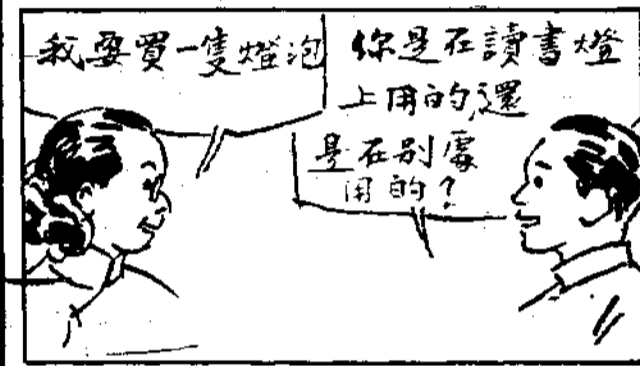 我要買一隻燈泡
你是在讀書燈
上用的,還
是在别處
用的?